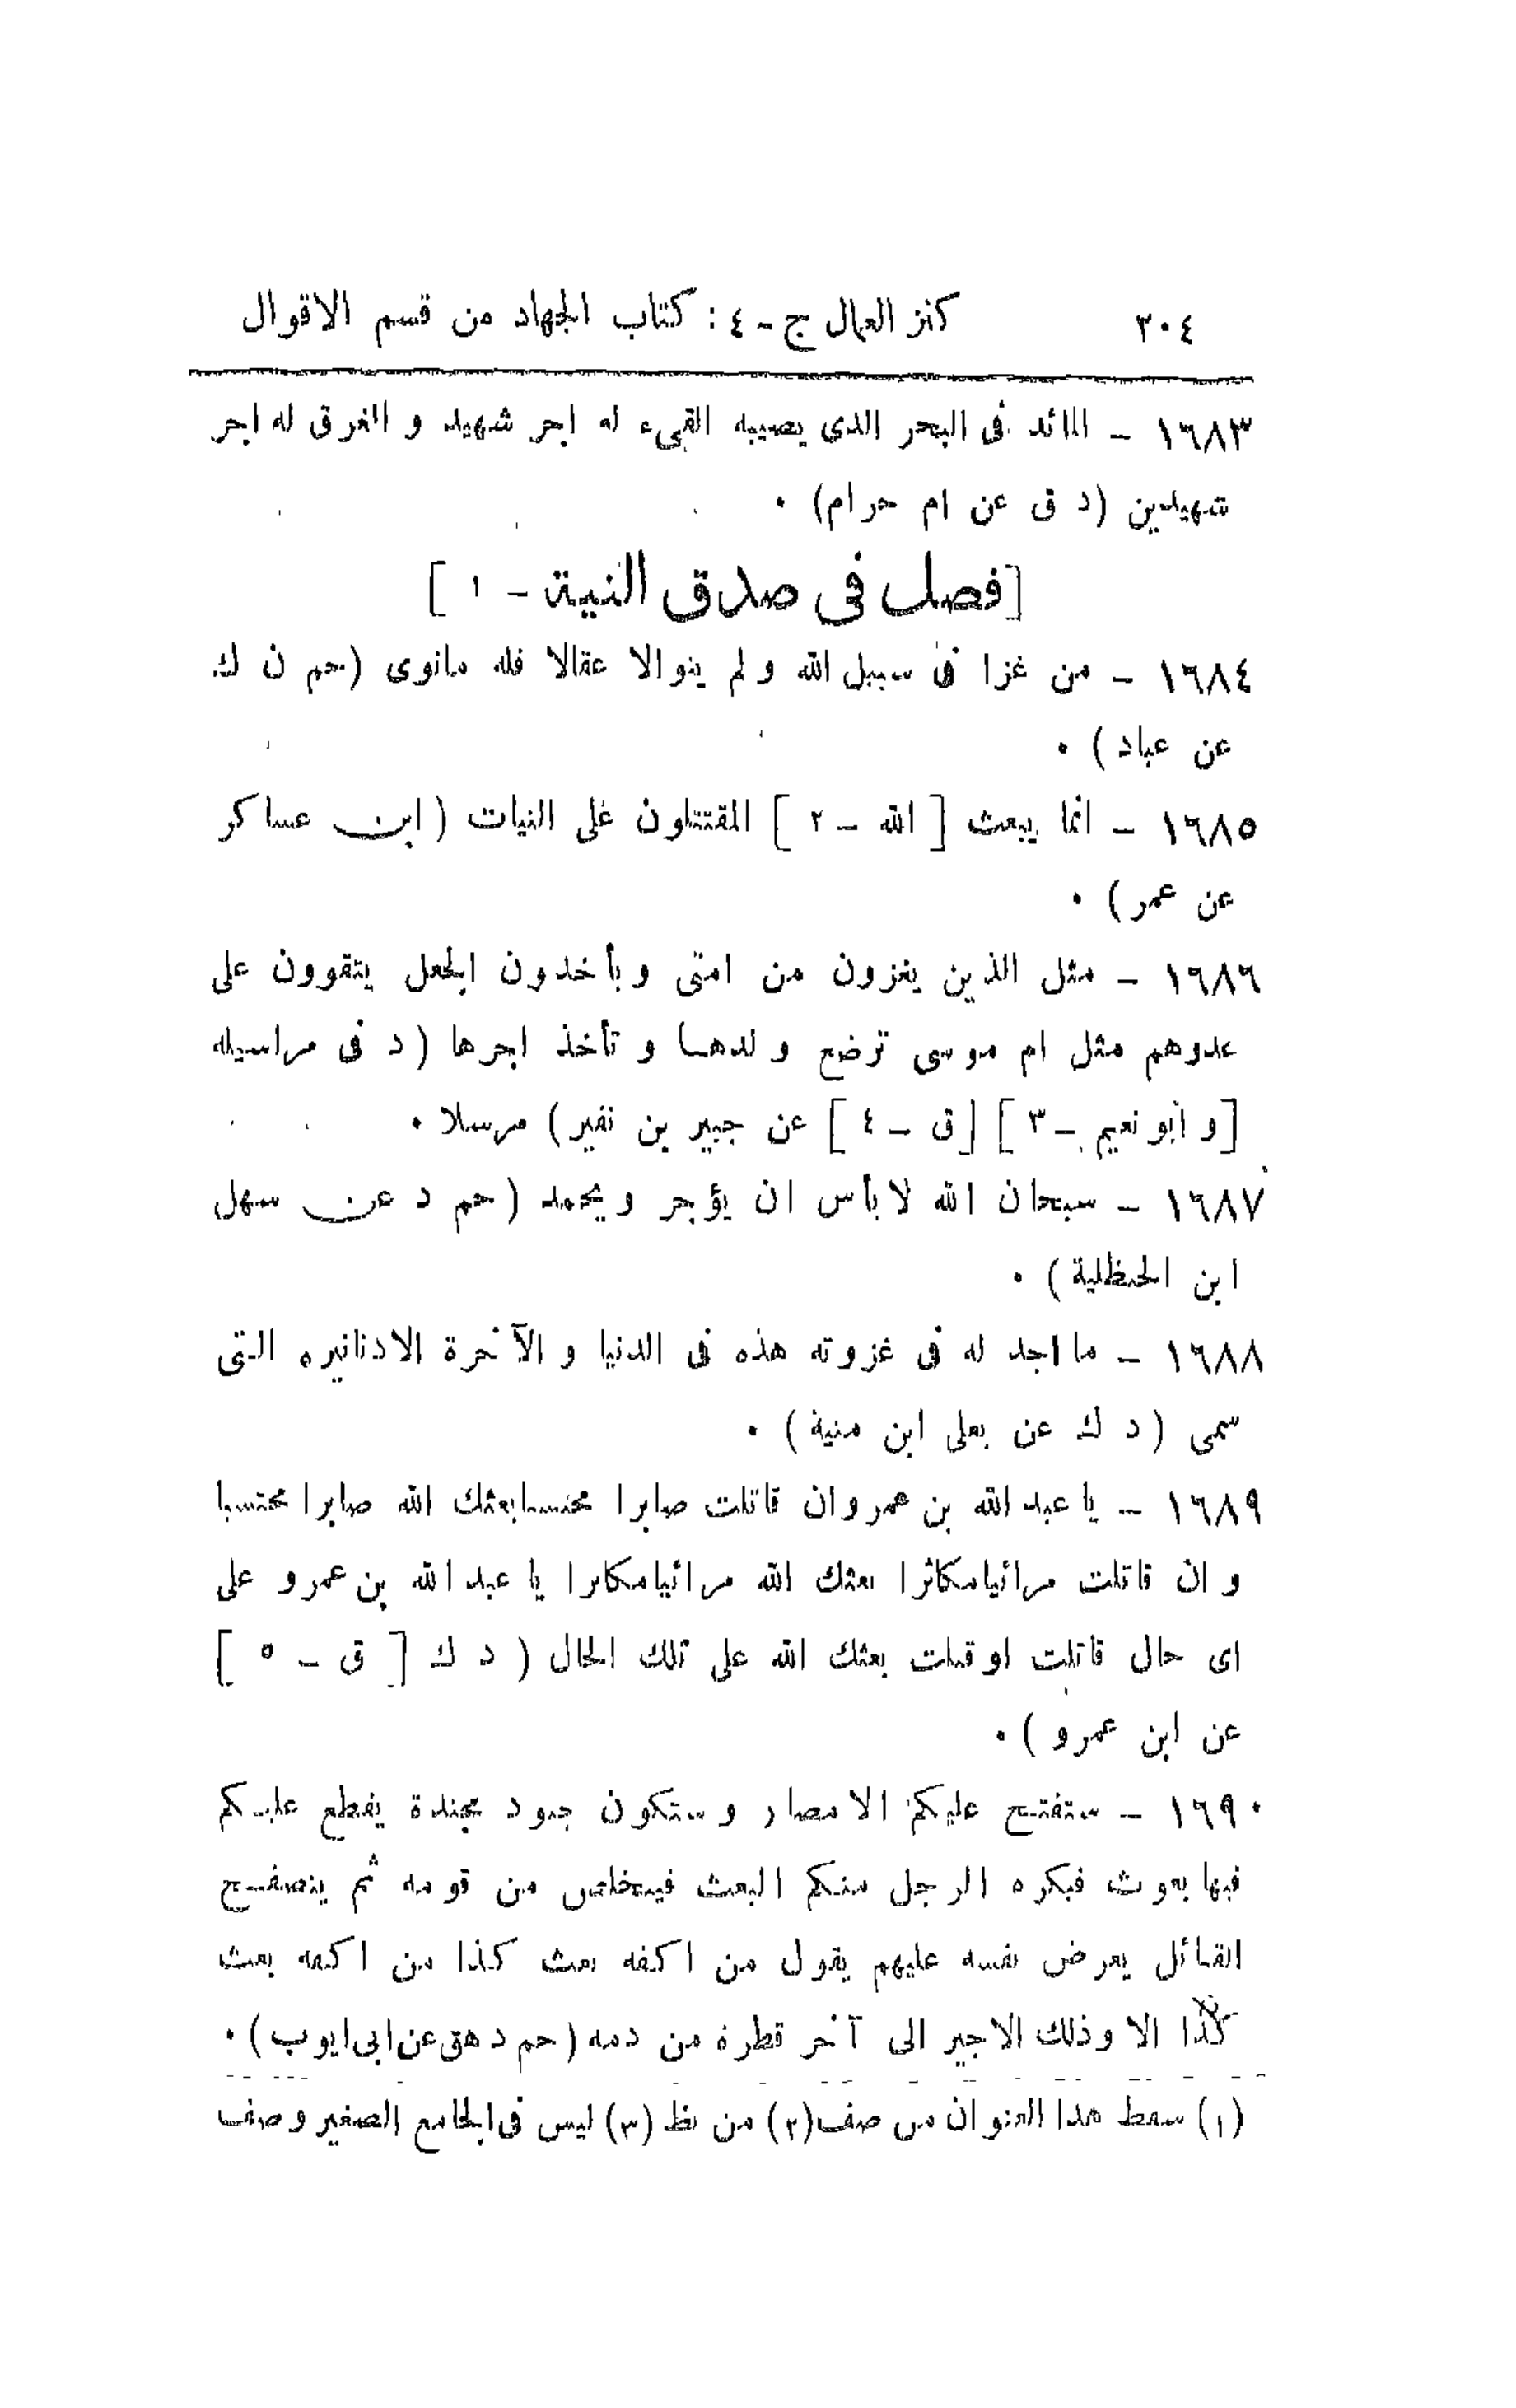 ٢٠٤ كنز العمال ج - ٤ : كتاب الجهاد من قسم الاقوال
١٦٨٣ - المائد فى البحر الذى يصيبه القىء له اجر شهيد و الغرق له اجر
شهيدين (د ق عن ام حرام) ٠
[فصل فى صدق النية - ١ ]
١٦٨٤ - من غزا فى سبيل الله و لم ينو الا عقالا فله مانوى (حم ن ك
عن عباد) ٠
١٦٨٥ - انما يبعث [ الله - ٢ ] المقتتلون على النيات ( ابن عساكر
عن عمر) ٠
١٦٨٦ - مثل الذين يغزون من امتى و يأخذون الجعل يتقوون على
عدوهم مثل ام موسى ترضع ولدها و تأخذ اجرها (د فى مراسيله
[و أبو نعيم - ٣ ] [ق - ٤ ] عن جبير بن نفير) مرسلا ٠
١٦٨٧ - سبحان الله لا بأس ان يؤجر و يحمد (حم د عن سهل
ابن الحنظلية ) ٠
١٦٨٨ - ما اجد له فى غزوته هذه فى الدنيا و الآخرة الا دنانيره التى
سمى (د ك عن يعلى ابن منية ) ٠
١٦٨٩ - يا عبد الله بن عمرو ان قاتلت صابرا محتسبا بعثك الله صابرا محتسبا
و ان قاتلت مرائيا مكاثرا بعثك الله مرائيا مكاثرا يا عبد الله بن عمرو على
اى حال قاتلت او قتلت بعثك الله على تلك الحال ( د ك [ ق - ٥ ]
عن ابن عمرو ) ٠
١٦٩٠ - ستفتح عليكم الامصار و ستكون جنود مجندة يقطع عليكم
فيها بعوث فيكره الرجل منكم البعث فيتخلص من قومه ثم يتصفح
القبائل يعرض نفسه عليهم يقول من اكفه بعث كذا من اكفه بعث
كذا الا و ذلك الاجير الى آخر قطرة من دمه (حم د هق عن ابى ايوب) ٠
(١) سقط هذا العنوان من صف (٢) من نظ (٣) ليس فى الجامع الصغير و صف